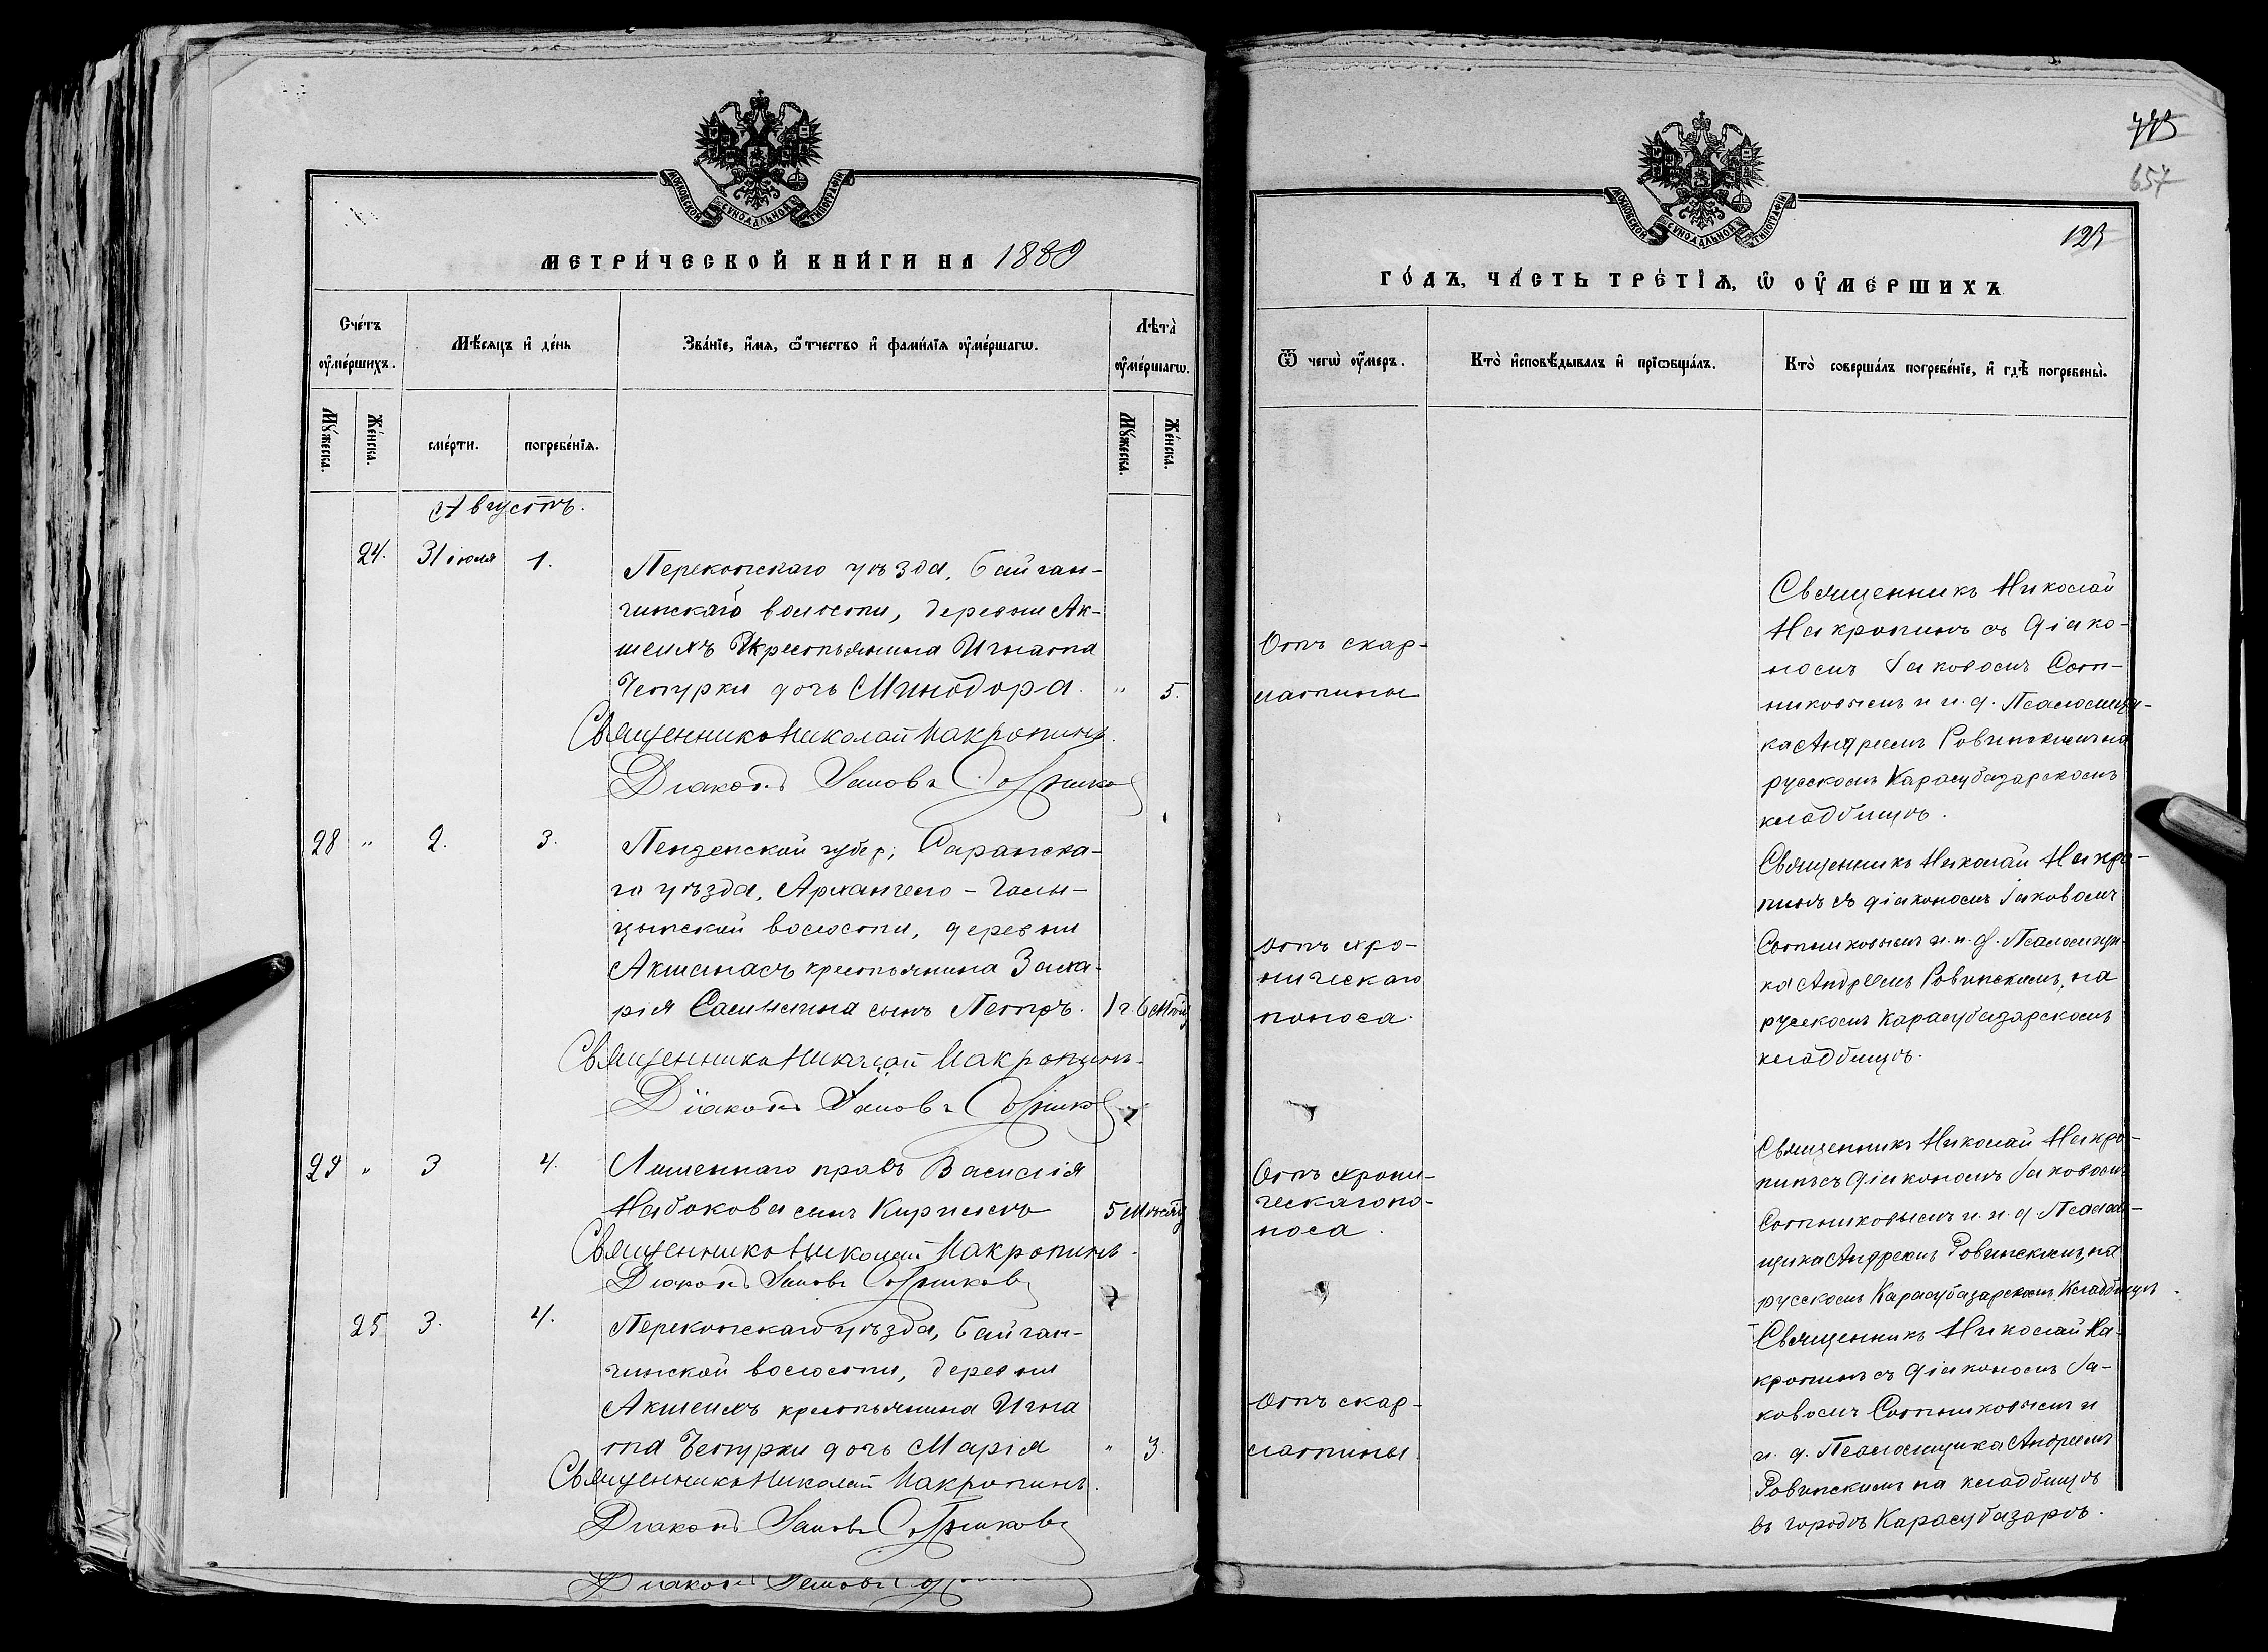 МОСКОВСКОЙ СѴНОДАЛЬНОЙ ТИПОГРАФІИ
МЕТРИ́ЧЕСКОЙ КНИ́ГИ НА 1889
Сче́тъ ᲂу҆ме́ршихъ.
Мѣ́сѧцъ и҆ де́нь
Зва́нїе, и҆́мѧ, ѻ҆́тчество и҆ фами́лїѧ ᲂу҆ме́ршагѡ.
Лѣта̀ ᲂу҆ме́ршагѡ.
Мꙋ́жеска.
Же́нска.
сме́рти.
погребе́нїѧ.
Мꙋ́жеска.
Же́нска.
Августъ.
24. 31 іюля 1.
Перекопскаго уѣзда, Байган-
чинскаго волости, деревни Ак-
шеихъ крестьянина Игната
Чепурки дочь Минодора. " 5.
Священникъ Николай Макропинъ.
Діаконъ Іаковъ Сотниковъ
28 " 2. 3.
Пензенской губер, Саранска-
го уѣзда, Архангело-Голи-
цынской волости, деревни
Акшенасъ крестьянина Заха-
рія Самылина сынъ Петръ. 1 г. 6 мѣс
Священникъ Николай Макропинъ.
Діаконъ Іаковъ Сотниковъ
29 " 3 4.
Лишеннаго правъ Василія
Набокова сынъ Кириллъ 5 мѣсяц
Священникъ Николай Макропинъ.
Діаконъ Іаковъ Сотниковъ
25 3. 4.
Перекопскаго уѣзда, Байган-
чинской волости, деревни
Акшеихъ крестьянина Игна
та Чепурки дочь Марія " 3.
Священникъ Николай Макропинъ.
Діаконъ Іаковъ Сотниковъ
Діаконъ Іаковъ
657
123
МОСКОВСКОЙ СѴНОДАЛЬНОЙ ТИПОГРАФІИ
ГО́ДЪ, ЧА́СТЬ ТРЕ́ТЇѦ, Ѡ҆ ОУ҆МЕ́РШИХЪ
Ѿ чегѡ̀ ᲂу҆́меръ.
Кто̀ и҆сповѣ́дывалъ и҆ прїѡбща́лъ.
Кто̀ соверша́лъ погребе́нїе, и҆ гдѣ̀ погребены̀.
Отъ скар-
латины
Священникъ Николай
Макропинъ съ діако-
номъ Іаковомъ Сот-
никовымъ и и. д. Псаломщи-
ка Андреемъ Ровинскимъ на
русскомъ Карасубазарскомъ
кладбищѣ.
Отъ хро-
ническаго
поноса.
Священникъ Николай Макро-
пинъ съ діакономъ Іаковомъ
Сотниковымъ и и. д. Псаломщи-
ка Андреемъ Ровинскимъ, на
русскомъ Карасубазарскомъ
кладбищѣ.
Отъ хрони-
ческаго по-
носа.
Священникъ Николай Макро-
пинъ съ діакономъ Іаковомъ
Сотниковымъ и и. д. Псалом-
щика Андреемъ Ровинскимъ, на
русскомъ Карасубазарскомъ Кладбищѣ.
Отъ скар-
латины.
Священникъ Николай Ма-
кропинъ съ діакономъ Іа-
ковомъ Сотниковымъ и
и. д. Псаломщика Андреемъ
Ровинскимъ на кладбищѣ
въ городѣ Карасубазарѣ.